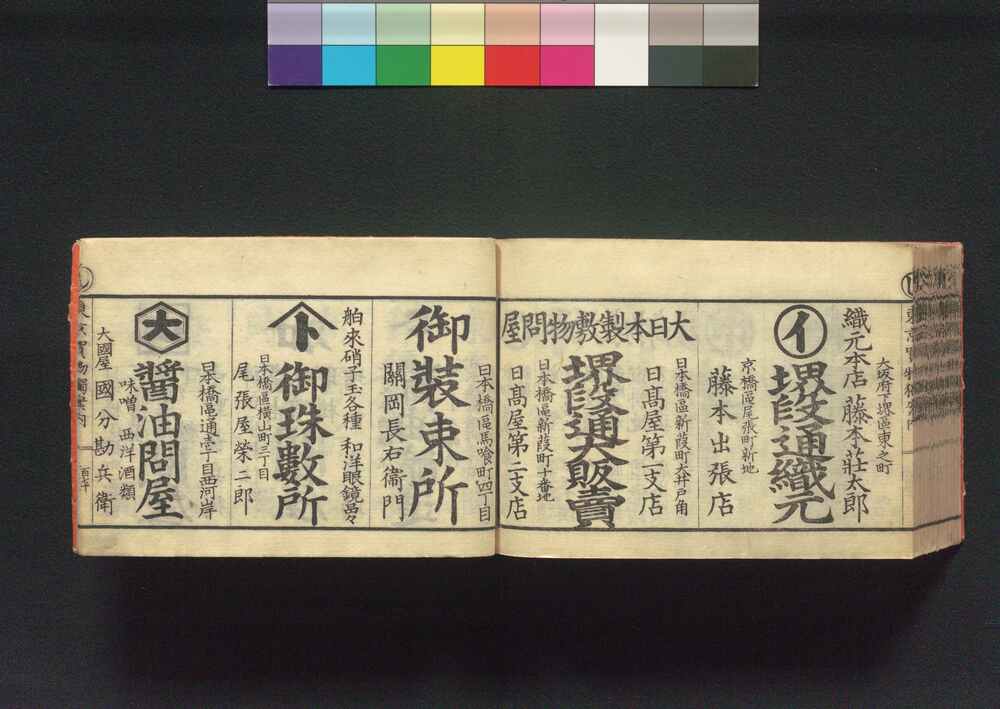 大坂府下堺區東之町
織元本店 藤本莊太郎
イ
堺段通織元
京橋區尾張町新地
藤本出張店
大日本製敷物問屋
日本橋區新葭町大井戸角
日髙屋第一支店
堺段通大販賣
日本橋區新葭町十番地
日髙屋第二支店
日本橋區馬喰町四丁目
御裝束所
關岡長右衞門
舶來硝子玉各種 和洋眼鏡品々
ト
御珠數所
日本橋區横山町三丁目
尾張屋榮二郎
日本橋區通壹丁目西河岸
大
醬油問屋
味噌 西洋酒類
大國屋 國分勘兵衞